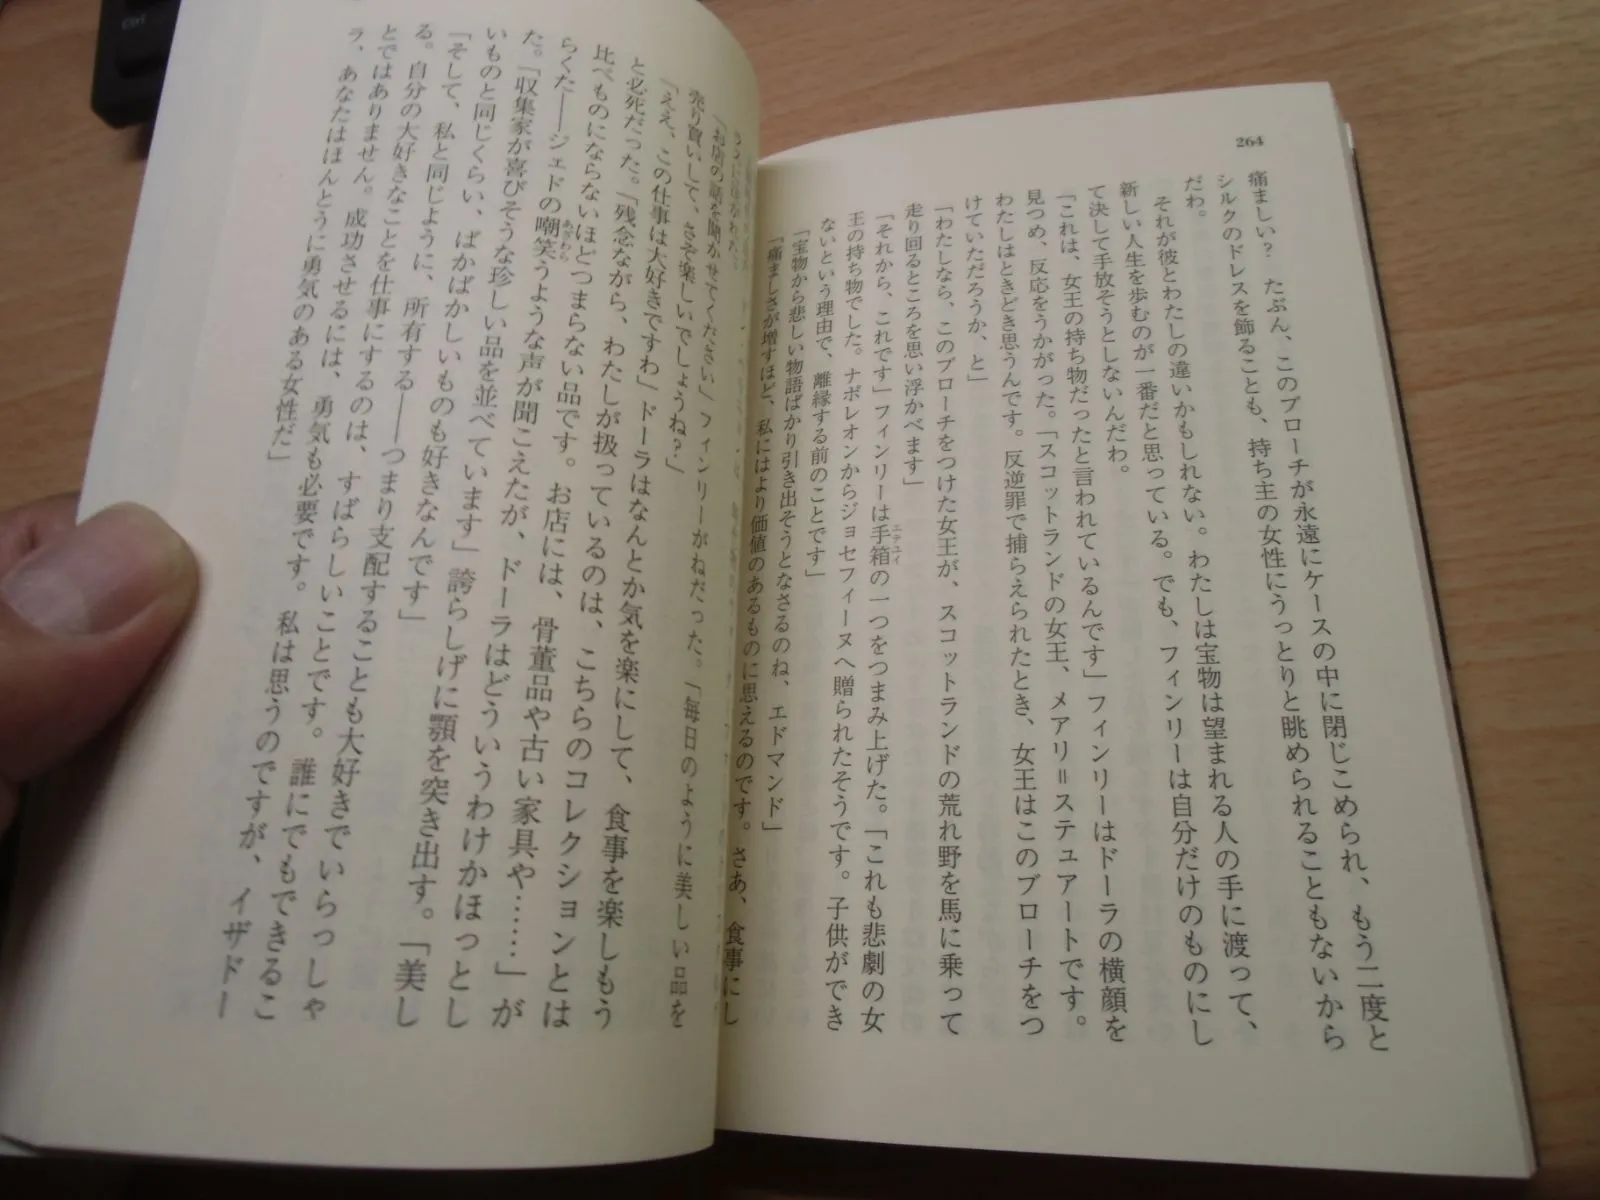 Ctrl
264
痛ましい? たぶん、このブローチが永遠にケースの中に閉じこめられ、もう二度と
シルクのドレスを飾ることも、持ち主の女性にうっとりと眺められることもないから
だわ。
それが彼とわたしの違いかもしれない。わたしは宝物は望まれる人の手に渡って、
新しい人生を歩むのが一番だと思っている。でも、フィンリーは自分だけのものにし
て決して手放そうとしないんだわ。
「これは、女王の持ち物だったと言われているんです」フィンリーはドーラの横顔を
見つめ、反応をうかがった。「スコットランドの女王、メアリ=ステュアートです。
わたしはときどき思うんです。反逆罪で捕らえられたとき、女王はこのブローチをつ
けていただろうか、と」
「わたしなら、このブローチをつけた女王が、スコットランドの荒れ野を馬に乗って
走り回るところを思い浮かべます」
「それから、これです」フィンリーは手箱の一つをつまみ上げた。「これも悲劇の女
エテュイ
王の持ち物でした。ナポレオンからジョセフィーヌへ贈られたそうです。子供ができ
ないという理由で、離縁する前のことです」
「宝物から悲しい物語ばかり引き出そうとなさるのね、エドマンド」
「痛ましさが増すほど、私にはより価値のあるものに思えるのです。さあ、食事にし
「お店の話を聞かせてください」フィンリーがねだった。「毎日のように美しい品を
売り買いして、さぞ楽しいでしょうね?」
「ええ、この仕事は大好きですわ」ドーラはなんとか気を楽にして、食事を楽しもう
と必死だった。「残念ながら、わたしが扱っているのは、こちらのコレクションとは
比べものにならないほどつまらない品です。お店には、骨董品や古い家具や……」が
らくた――ジェドの嘲笑うような声が聞こえたが、ドーラはどういうわけかほっとし
あざわら
た。「収集家が喜びそうな珍しい品を並べています」誇らしげに顎を突き出す。「美し
いものと同じくらい、ばかばかしいものも好きなんです」
「そして、私と同じように、所有する――つまり支配することも大好きでいらっしゃ
る。自分の大好きなことを仕事にするのは、すばらしいことです。誰にでもできるこ
とではありません。成功させるには、勇気も必要です。私は思うのですが、イザドー
ラ、あなたはほんとうに勇気のある女性だ」